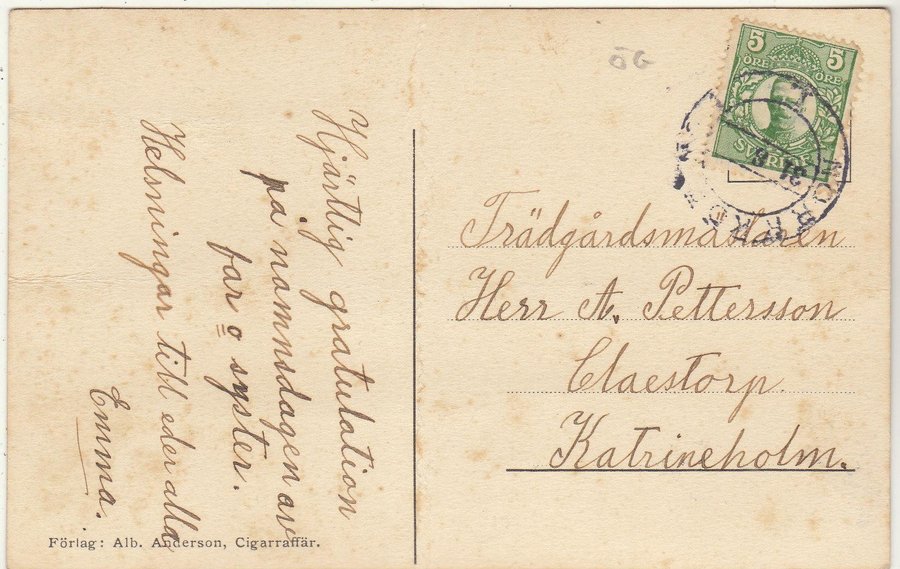 Hjärtlig gratulation
på namnsdagen av
far o syster.
Helsningar till eder alla
Emma.
Förlag: Alb. Anderson, Cigarraffär.
ÖG
5 5
ÖRE ÖRE
SVERIGE
31 8
Trädgårdsmästaren
Herr A. Pettersson
Claestorp.
Katrineholm.